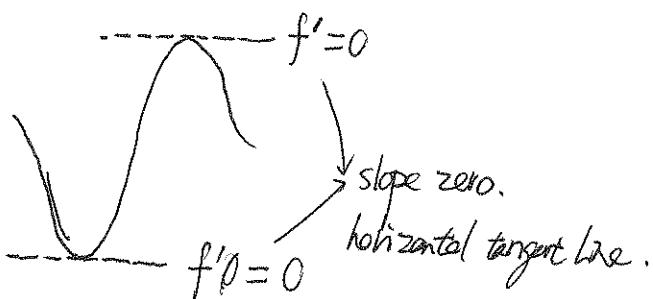 f'=0
slope zero.
horizontal tangent line.
f'0=0